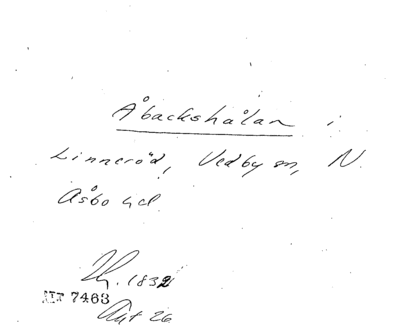 Åbackshålan i
Linneröd, Vedby sn, N.
Åsbo hd.
Uy. 1832
ALF 7463
Aut 26